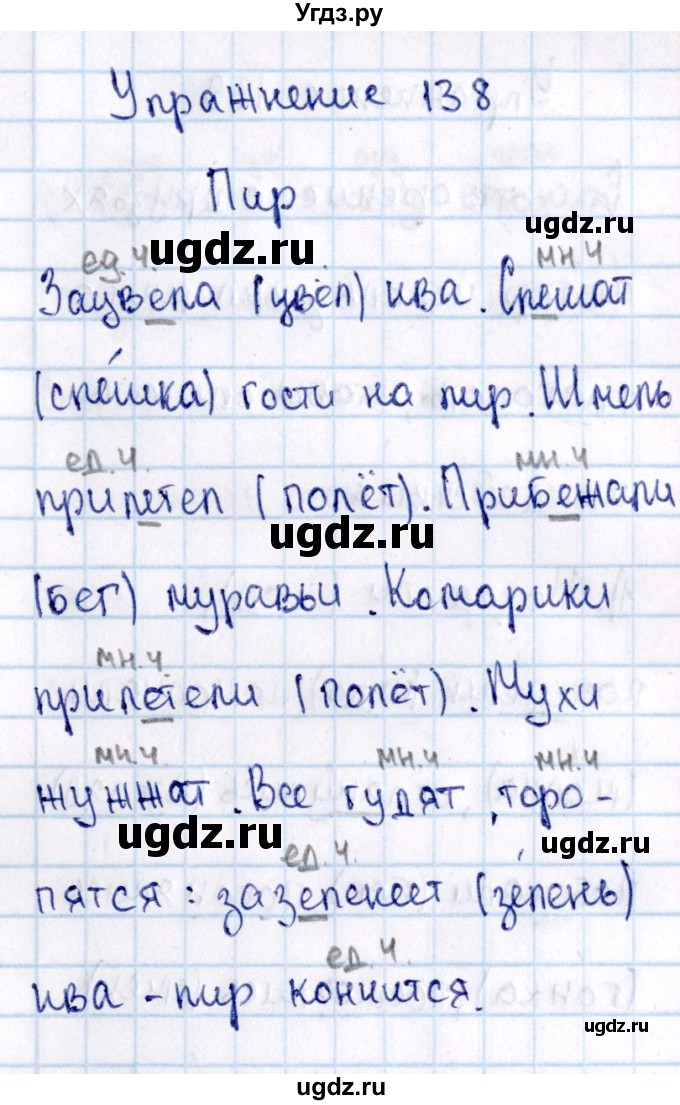 Угдз.ру
Упражнение 138
Пир
ugdz.ru
ugdz.ru
ед.ч. мн.ч
Зацвела (цвёл) ива. Спешат
(спе́шка) гости на пир. Шмель
ед.ч. мн.ч
прилетел (полёт). Прибежали
ugdz.ru
(бег) муравьи. Комарики
мн.ч
прилетели (полёт). Мухи
мн.ч мн.ч мн.ч
жужжат. Все гудят, торо-
ugdz.ru
ugdz.ru
ед.ч.
пятся: зазеленеет (зе́лень)
ед.ч.
ива - пир кончится.
ugdz.ru
ugdz.ru